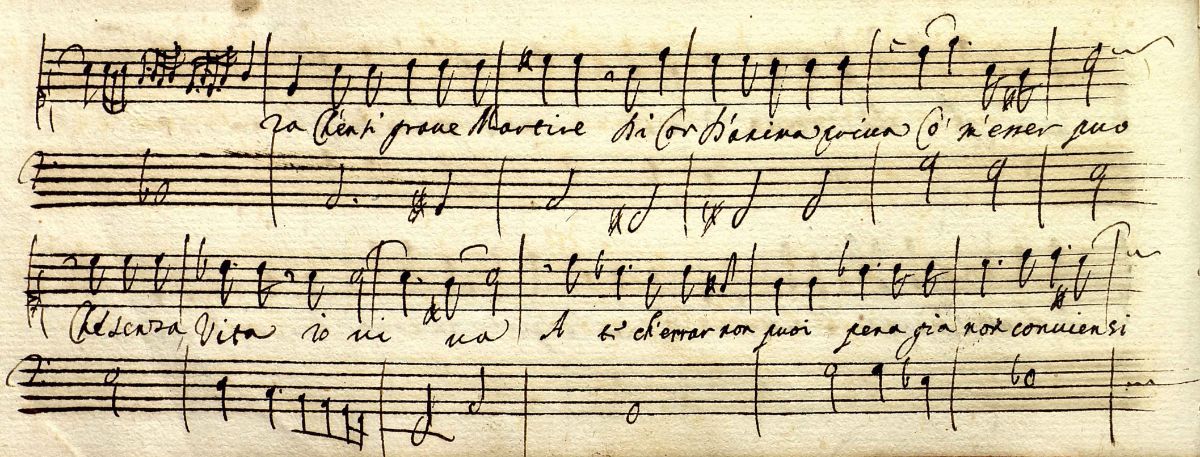 za Ch'enti graue Martire di Cor d'anima priua Có m'esser puo
Ché senza Vita io ui ua A té ch'errar non puoi pena gia non conuiensi